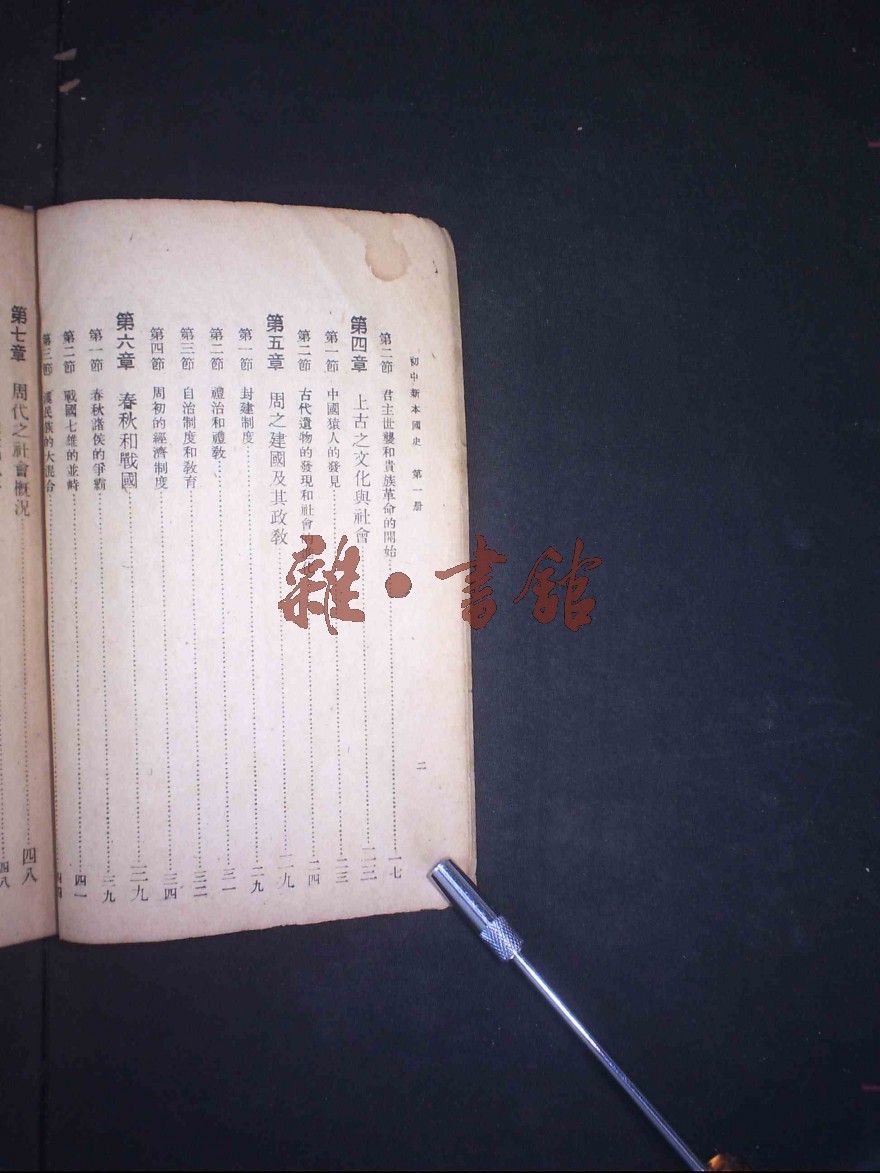 初中新本國史 第一册 二
第二節 君主世襲和貴族革命的開始 一七
第四章 上古之文化與社會 二三
第一節 中國猿人的發見 二三
第二節 古代遺物的發現和社會 二四
第五章 周之建國及其政敎 二九
第一節 封建制度 二九
第二節 禮治和禮敎 三一
第三節 自治制度和敎育 三二
第四節 周初的經濟制度 三四
第六章 春秋和戰國 三九
第一節 春秋諸侯的爭霸 三九
第二節 戰國七雄的並峙 四一
第三節 漢民族的大混合
第七章 周代之社會概況 四八
四八
雜·書館